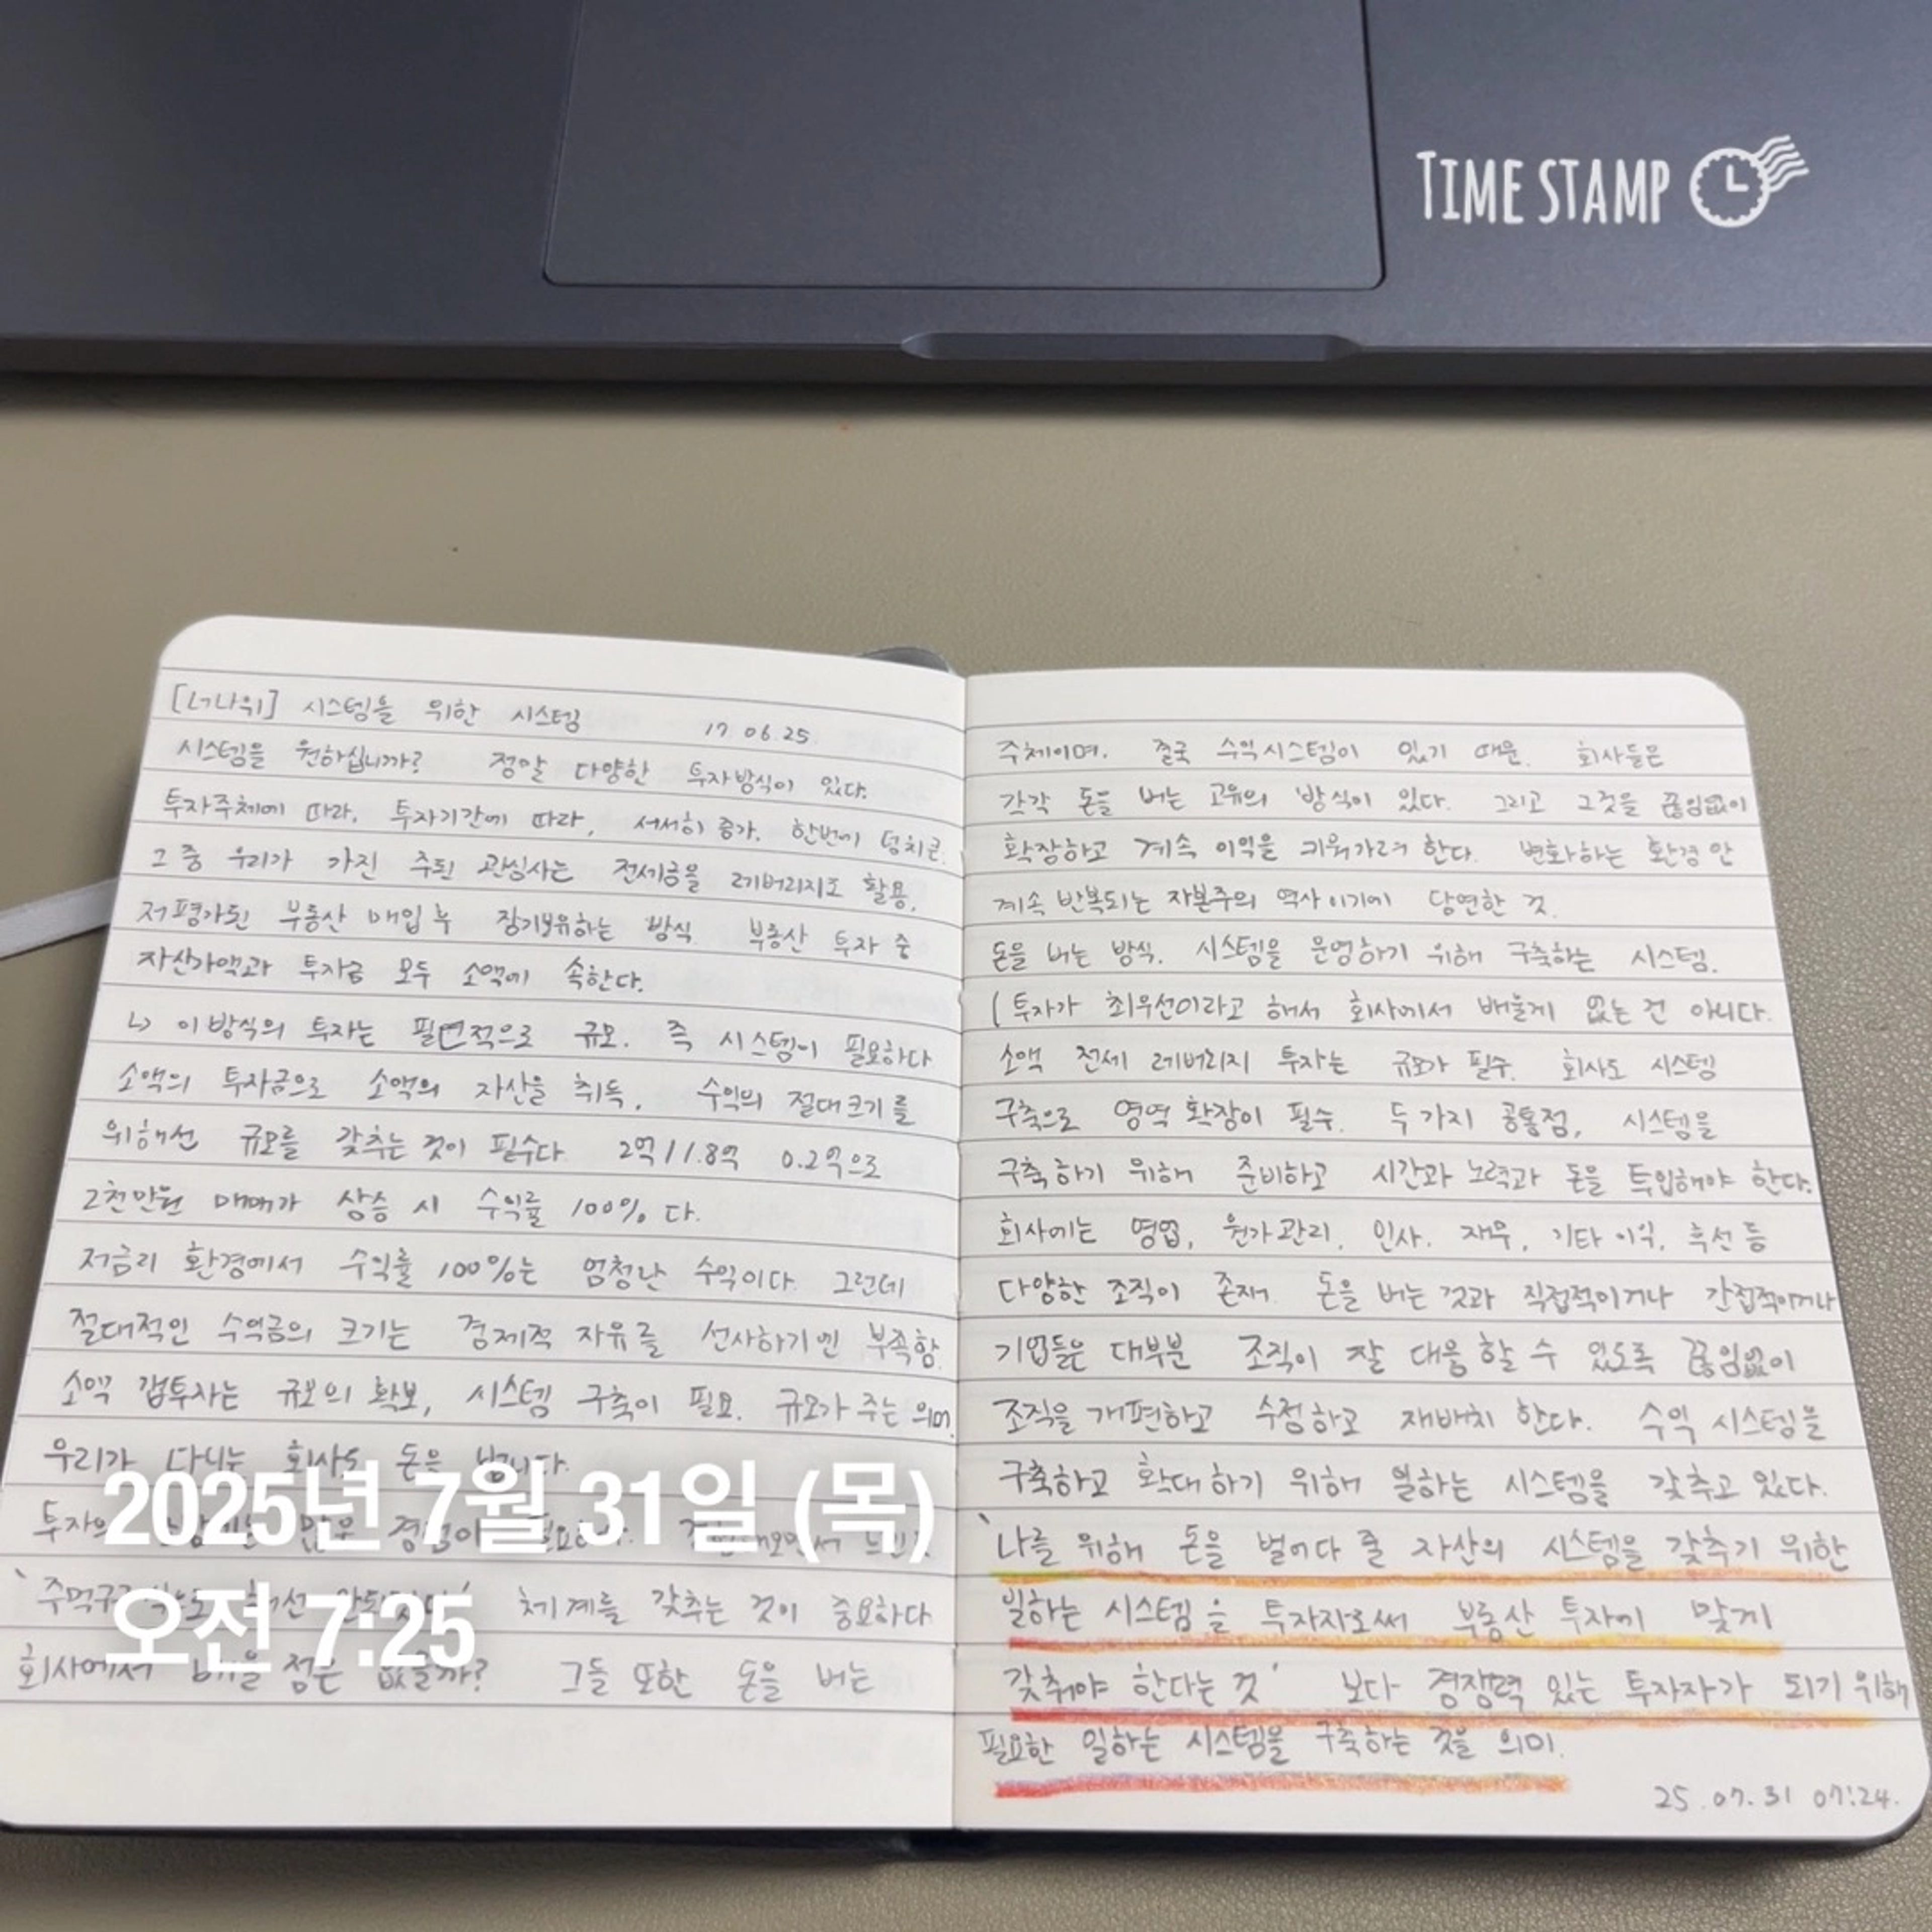 TIME STAMP
[너나위] 시스템을 위한 시스템 17.06.25
시스템을 원하십니까? 정말 다양한 투자방식이 있다.
투자주체에 따라, 투자기간에 따라, 서서히 증가, 한번에 덩치큰.
그 중 우리가 가진 주된 관심사는 전세금을 레버리지로 활용,
저평가된 부동산 매입 후 장기보유하는 방식 부동산 투자 중
자산가액과 투자금 모두 소액에 속한다.
↳ 이 방식의 투자는 필연적으로 규모. 즉 시스템이 필요하다
소액의 투자금으로 소액의 자산을 취득, 수익의 절대크기를
위해선 규모를 갖추는 것이 필수다 2억/1.8억 0.2억으로
2천만원 매매가 상승 시 수익률 100% 다.
저금리 환경에서 수익률 100%는 엄청난 수익이다 그런데
절대적인 수익금의 크기는 경제적 자유를 선사하기엔 부족함.
소액 갭투자는 규모의 확보, 시스템 구축이 필요. 규모가 주는 의미.
우리가 다니는 회사도 돈을 법니다.
투자의
체계를 갖추는 것이 중요하다
회사에서 배울 점은 없을까? 그들 또한 돈을 버는
2025년 7월 31일 (목)
오전 7:25
주체이며. 결국 수익시스템이 있기 때문. 회사들은
각각 돈을 버는 고유의 방식이 있다. 그리고 그것을 끊임없이
확장하고 계속 이익을 키워가려 한다. 변화하는 환경 안
계속 반복되는 자본주의 역사이기에 당연한 것.
돈을 버는 방식. 시스템을 운영하기 위해 구축하는 시스템.
( 투자가 최우선이라고 해서 회사에서 배울게 없는 건 아니다.
소액 전세 레버리지 투자는 규모가 필수. 회사도 시스템
구축으로 영역 확장이 필수. 두 가지 공통점, 시스템을
구축하기 위해 준비하고 시간과 노력과 돈을 투입해야 한다.
회사에는 영업, 원가관리, 인사. 재무, 기타 이익, 후선 등
다양한 조직이 존재. 돈을 버는 것과 직접적이거나 간접적이거나
기업들은 대부분 조직이 잘 대응 할 수 있도록 끊임없이
조직을 개편하고 수정하고 재배치 한다. 수익 시스템을
구축하고 확대하기 위해 일하는 시스템을 갖추고 있다.
'나를 위해 돈을 벌어다 줄 자산의 시스템을 갖추기 위한
일하는 시스템을 투자자로써 부동산 투자에 맞게
갖춰야 한다는 것' 보다 경쟁력 있는 투자자가 되기 위해
필요한 일하는 시스템을 구축하는 것을 의미.
25.07.31 07:24.